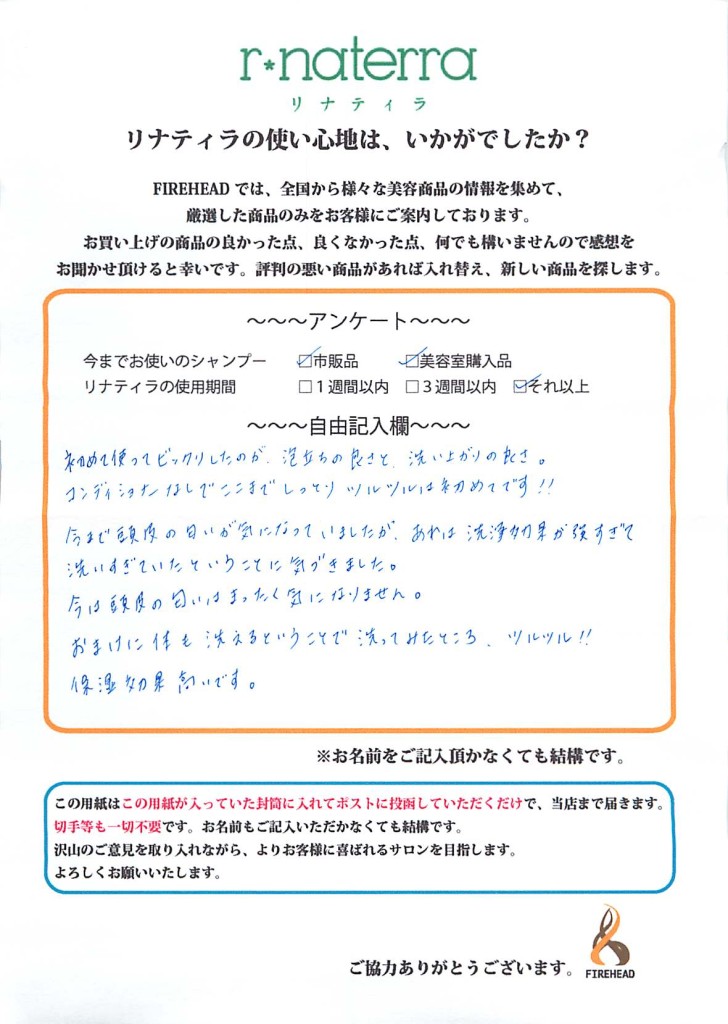 r*naterra
リナティラ
リナティラの使い心地は、いかがでしたか？
FIREHEAD では、全国から様々な美容商品の情報を集めて、
厳選した商品のみをお客様にご案内しております。
お買い上げの商品の良かった点、良くなかった点、何でも構いませんので感想を
お聞かせ頂けると幸いです。評判の悪い商品があれば入れ替え、新しい商品を探します。
〜〜〜アンケート〜〜〜
今までお使いのシャンプー ☑市販品 ☑美容室購入品
リナティラの使用期間 □１週間以内 □３週間以内 ☑それ以上
〜〜〜自由記入欄〜〜〜
初めて使ってビックリしたのが、泡立ちの良さと、洗い上がりの良さ。
コンディショナーなしでここまでしっとりツルツルは初めてです!!
今まで頭皮の匂いが気になっていましたが、あれは洗浄効果が強すぎて
洗いすぎていたということに気づきました。
今は頭皮の匂いはまったく気になりません。
おまけに体も洗えるということで洗ってみたところ、ツルツル!!
保湿効果高いです。
※お名前をご記入頂かなくても結構です。
この用紙はこの用紙が入っていた封筒に入れてポストに投函していただくだけで、当店まで届きます。
切手等も一切不要です。お名前もご記入いただかなくても結構です。
沢山のご意見を取り入れながら、よりお客様に喜ばれるサロンを目指します。
よろしくお願いいたします。
ご協力ありがとうございます。
FIREHEAD